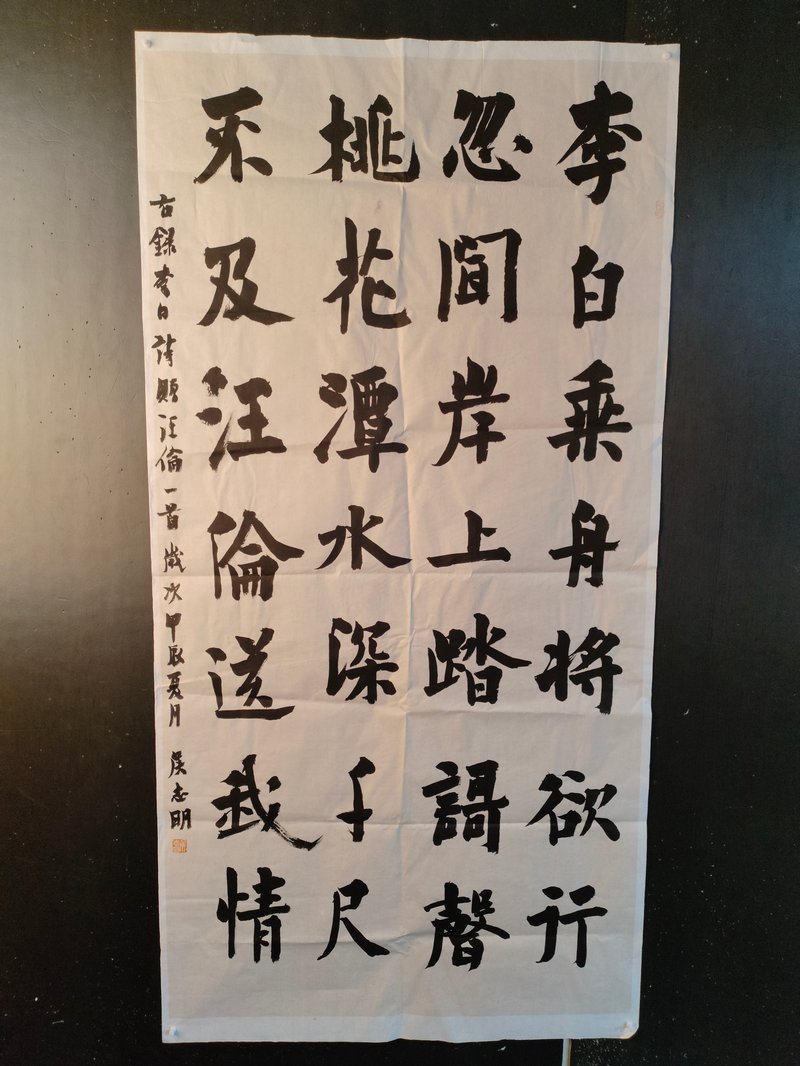 李白乘舟将欲行
忽闻岸上踏謌聲
桃花潭水深千尺
不及汪倫送我情
右録李白诗赠汪倫一首歲次甲辰夏月 侯志明